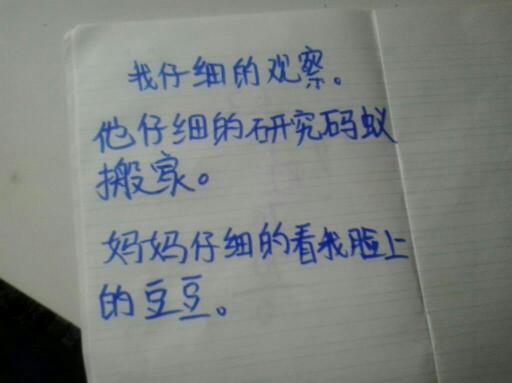 我仔细的观察。
他仔细的研究码蚁
搬家。
妈妈仔细的看我脸上
的豆豆。